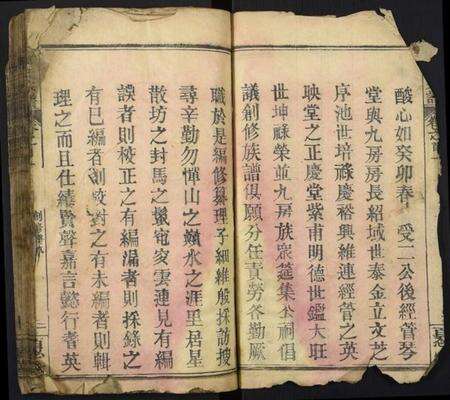 酸心如癸卯春 受二公後經管琴
堂與九房房長紹域世泰金立文芝
序池世培祿慶裕興維連經管之英
映堂之正慶堂紫甫明德世鑑大旺
世坤祿榮並九房族眾筵集 公祠倡
議創修族譜俱願分任責勞各勤厥
職於是編修纂理子細維殷採訪搜
尋辛勤勿憚山之巔水之涯里居星
散坊之封馬之鬣窀穸雲連見有編
誤者則校正之有編漏者則錄之
有已編者則校對之有未編者則輯
理之而且仕績賢聲嘉言懿行耆英